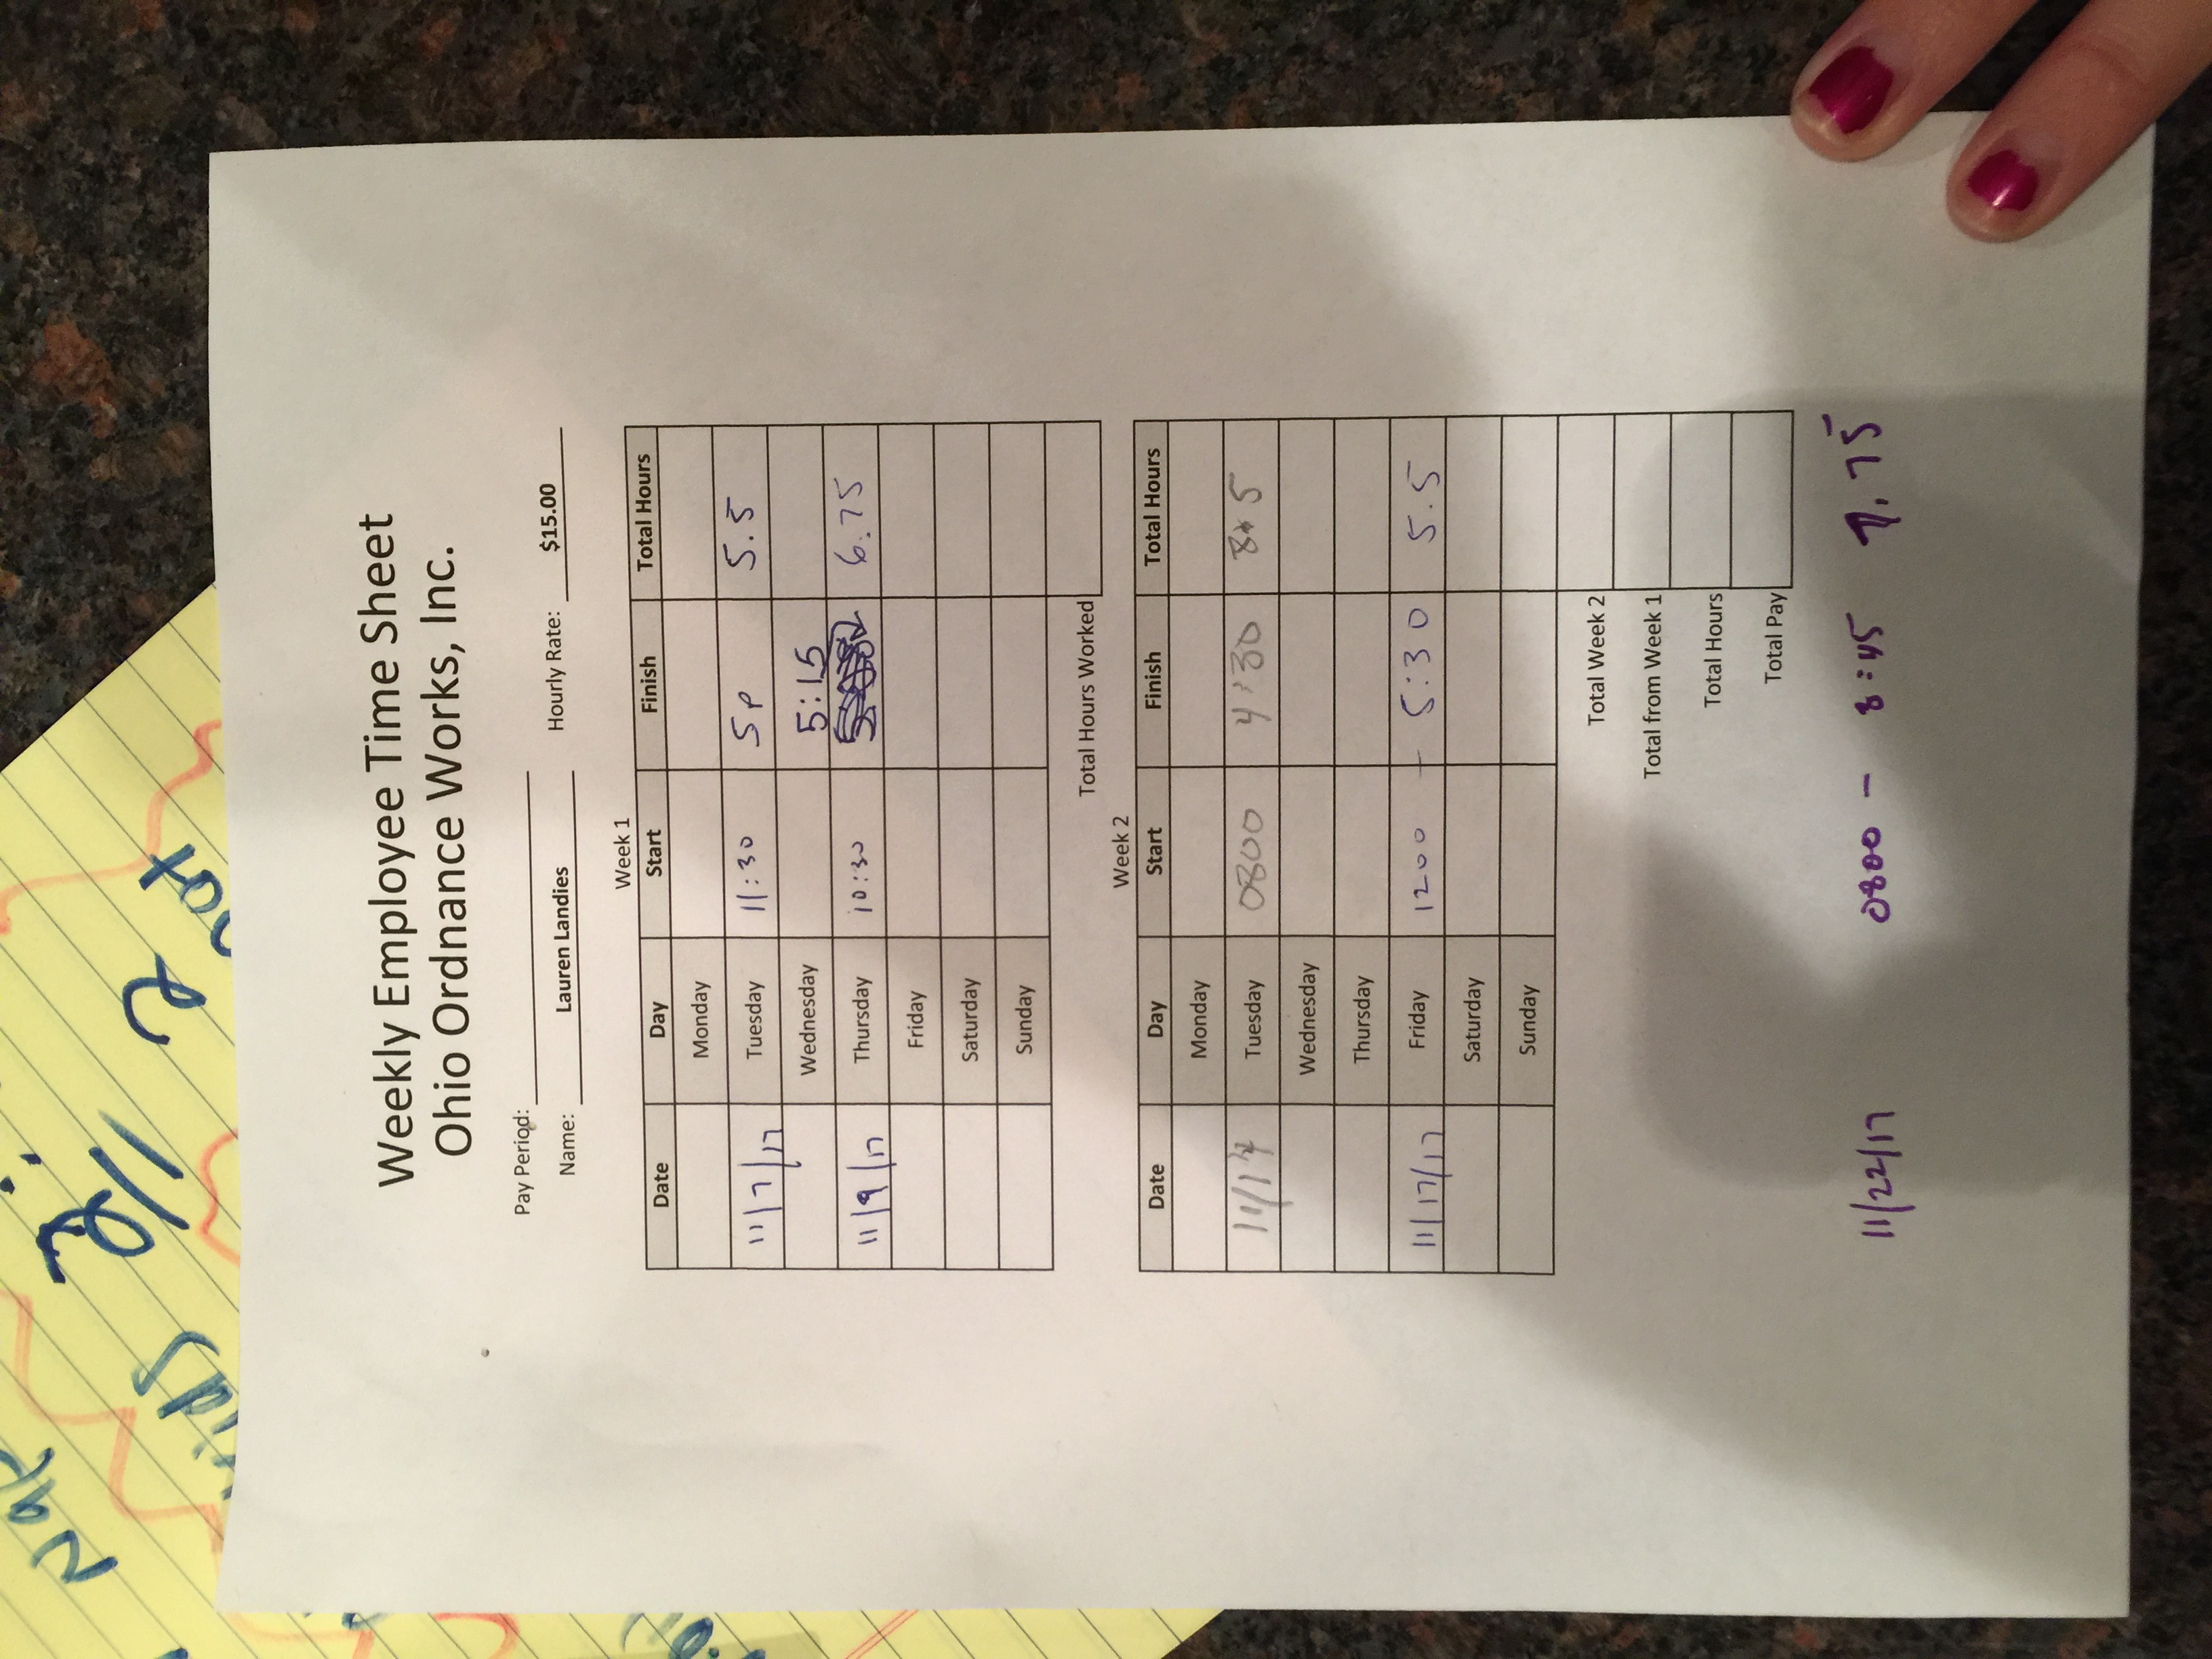 Nap
kids 2:
2
not
Weekly Employee Time Sheet
Ohio Ordnance Works, Inc.
Pay Period:
Name: Lauren Landies Hourly Rate: $15.00
Week 1
Date Day Start Finish Total Hours
Monday
11/7/17 Tuesday 11:30 5p 5.5
Wednesday
5:15
11/9/17 Thursday 10:30 6.75
Friday
Saturday
Sunday
Total Hours Worked
Week 2
Date Day Start Finish Total Hours
Monday
11/14 Tuesday 0800 4:30 8.5
Wednesday
Thursday
11/17/17 Friday 1200 - 5:30 5.5
Saturday
Sunday
Total Week 2
Total from Week 1
Total Hours
Total Pay
11/22/17 0800 - 8:45 .75